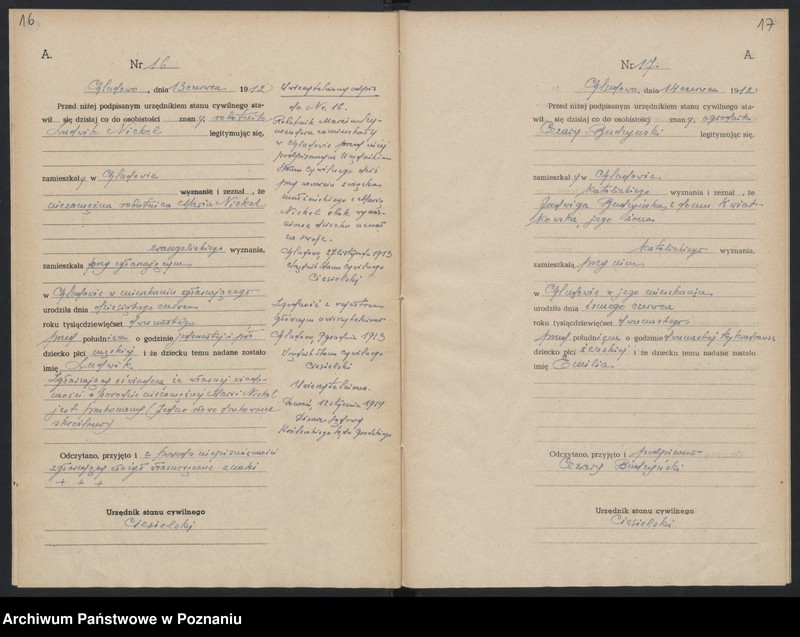 16
A.
Nr 16
, dnia 13 czerwca 1912
Przed niżej podpisanym urzędnikiem stanu cywilnego sta-
wił się dzisiaj co do osobistości znany, robotnik
Ludwik Nickel legitymując się,
zamieszkały w
wyznania i zeznał , że
niezamężna robotnica Maria Nickel
ewangelickiego wyznania,
zamieszkała przy zgłaszającym
w w mieszkaniu zgłaszającego
urodziła dnia czerwca
roku tysiącdziewięćset dwunastego
przed południem o godzinie
dziecko płci męskiej i że dziecku temu nadane zostało
imię Ludwik
Zgłaszający oświadcza że z własnej wiado-
mości o porodzie niezamężnej Marii Nickel
jest przekonany (jedno słowo drukowane
skreślono)
Odczytano, przyjęto i z powodu niepiśmienności
zgłaszający własnoręczne znaki
+ + +
Urzędnik stanu cywilnego
Ciesielski
do No. 16.
Robotnik Marcin
zamieszkały
w przed niżej
podpisanym Urzędnikiem
Stanu cywilnego
przy zawarciu związku
małżeńskiego z Marią
Nickel obok
dziecko uznał
za swoje.
, 27 listopada 1913
Urzędnik Stanu Cywilnego
Ciesielski
Zgodność z rejestrem
głównym uwierzytelnia
, 9 grudnia 1913
Urzędnik Stanu Cywilnego
Ciesielski
Uwierzytelniono.
, 12 stycznia 1914
Królewskiego Sądu
17
A.
Nr 17.
, dnia 14 czerwca 1912
Przed niżej podpisanym urzędnikiem stanu cywilnego sta-
wił się dzisiaj co do osobistości znany, ogrodnik
Cezary Budzyński legitymując się,
zamieszkały w
katolickiego wyznania i zeznał , że
Jadwiga Budzyńska z domu Kwiat-
kowska, jego żona
katolickiego wyznania,
zamieszkała przy nim
w w jego mieszkaniu
urodziła dnia ósmego czerwca
roku tysiącdziewięćset dwunastego
przed południem o godzinie dwunastej
dziecko płci żeńskiej i że dziecku temu nadane zostało
imię Emilia.
Odczytano, przyjęto i podpisano
Cezary Budzyński
Urzędnik stanu cywilnego
Ciesielski
Archiwum Państwowe w Poznaniu